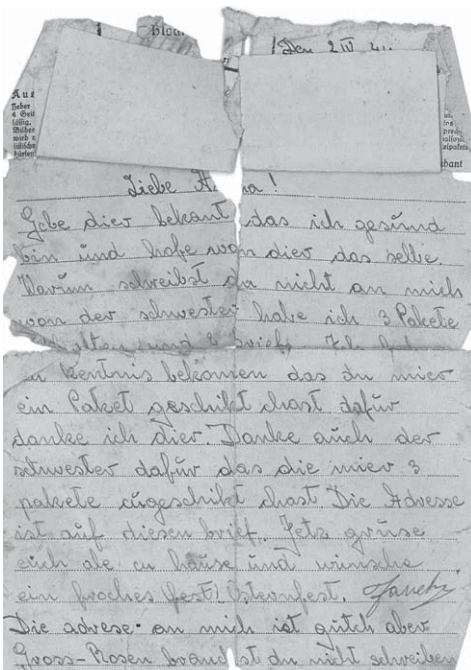 Bloc
Den 2 IV 41.
Aus
4 Seit
bant
Liebe
Gebe dier bekant das ich gesund
bin und hofe von dier das selbe
Warum schreibst du nicht an mich
von der schwester habe ich 3 Pakete
und 2 brief. Ich
kentnis bekomen das du mier
ein Paket geschikt chast dafür
danke ich dier. Danke auch der
schwester dafür das die mier 3
pakete cugeschikt chast. Die Adresse
ist auf diesen brief. Jetz grüse
eich ale cu hause und winsche
ein froches fest! Osternfest.
Die adrese an mich ist gutch aber
Gross-Rosen brauchst du nicht schreiben